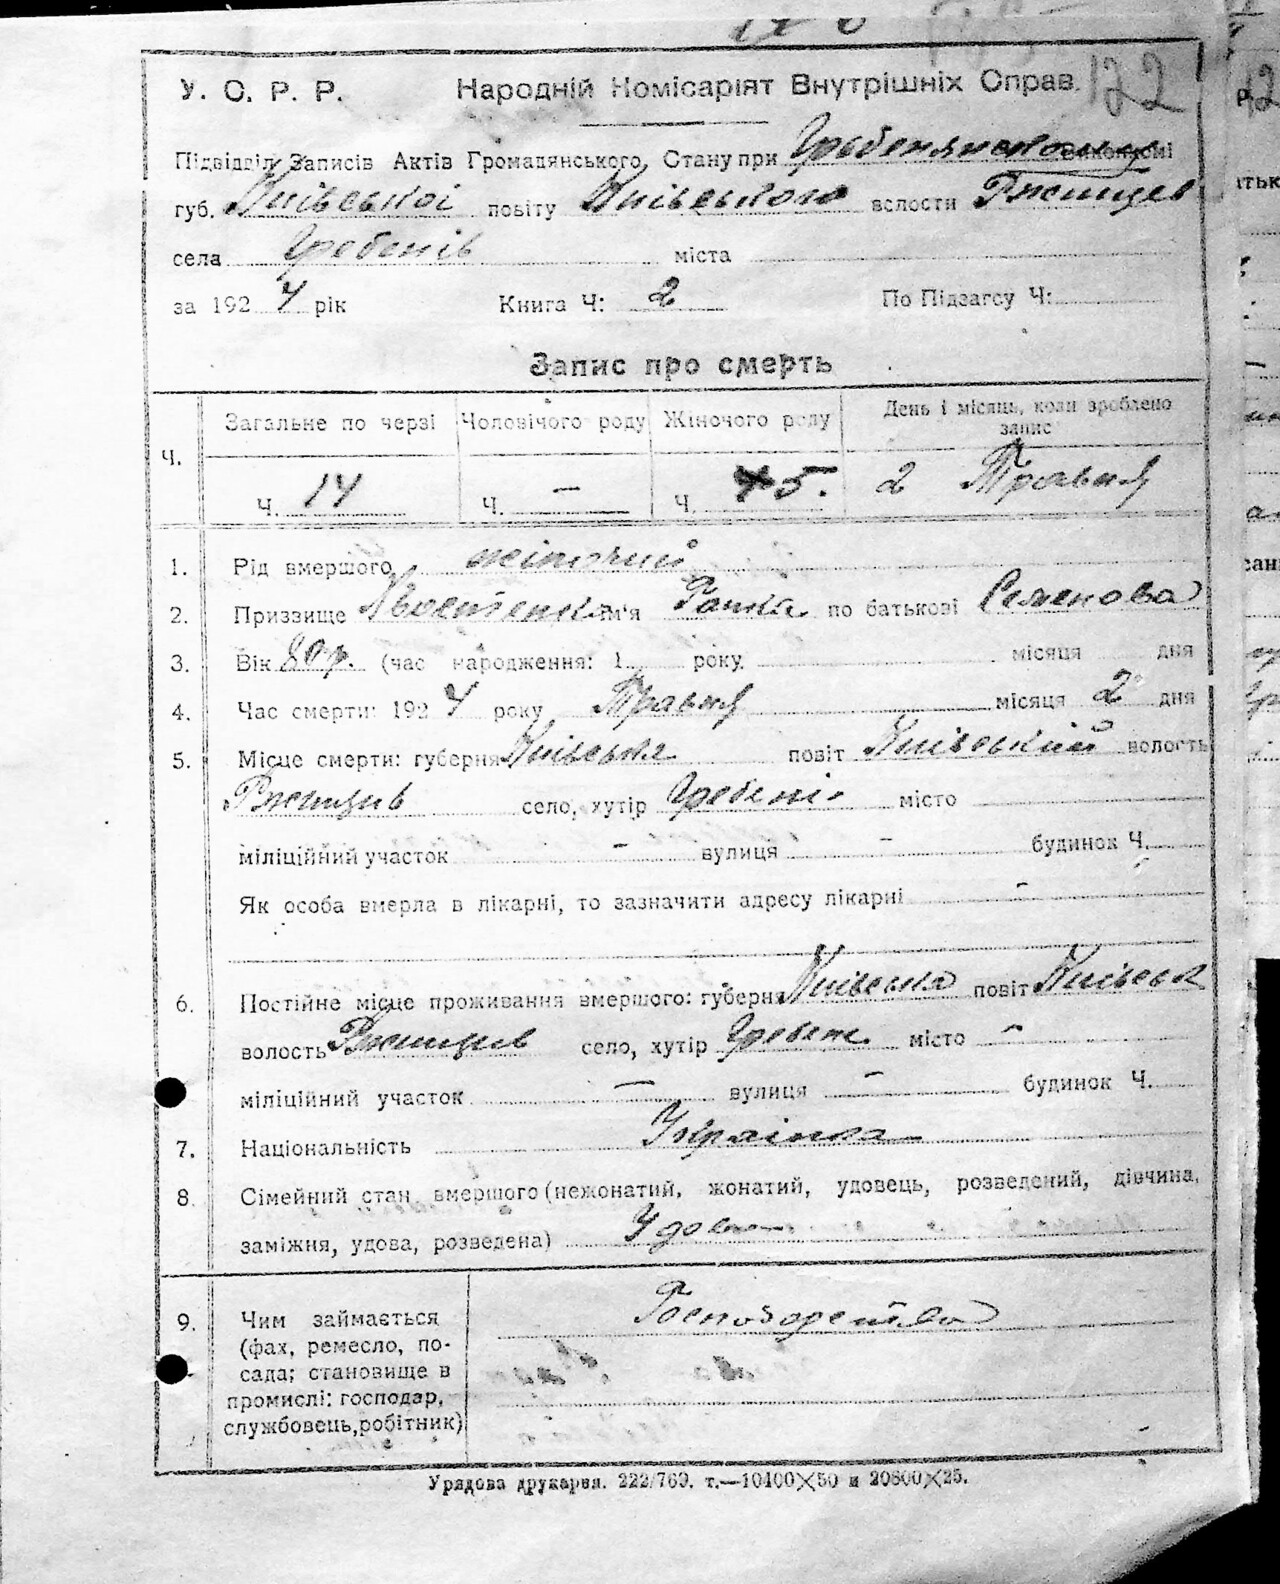 122
У. С. Р. Р. Народній Комісаріят Внутрішніх Справ.
Підвідділ Записів Актів Громадянського Стану при виконкомі
губ. Київської повіту Київського волости Ржищев
села Гребенів міста
за 1924 рік Книга Ч: 2 По Підзагсу Ч:
Запис про смерть
Ч. Загальне по черзі Чоловічого роду Жіночого роду День і місяць, коли зроблено запис
Ч. 14 Ч. — Ч. 5. 2 Травня
1. Рід вмершого жіночий
2. Приззище ім'я Ганна по батькові Семенова
3. Вік 80 р. (час народження: 1 року місяця дня
4. Час смерти: 1924 року Травня місяця 2 дня
5. Місце смерти: губерня Київська повіт Київський волость
Ржищив село, хутір Гребені місто
міліційний участок – вулиця – будинок Ч.
Як особа вмерла в лікарні, то зазначити адресу лікарні –
6. Постійне місце проживання вмершого: губерня Київська повіт Київськ
волость Ржищив село, хутір Гребен. місто –
міліційний участок — вулиця – будинок Ч.
7. Національність Українка
8. Сімейний стан вмершого (нежонатий, жонатий, удовець, розведений, дівчина,
заміжня, удова, розведена) Удова
9. Чим займається Господарство
(фах, ремесло, по-
сада; становище в
промислі: господар,
службовець, робітник)
Урядова друкарня. 222/769. т.—10400×50 и 20800×25.